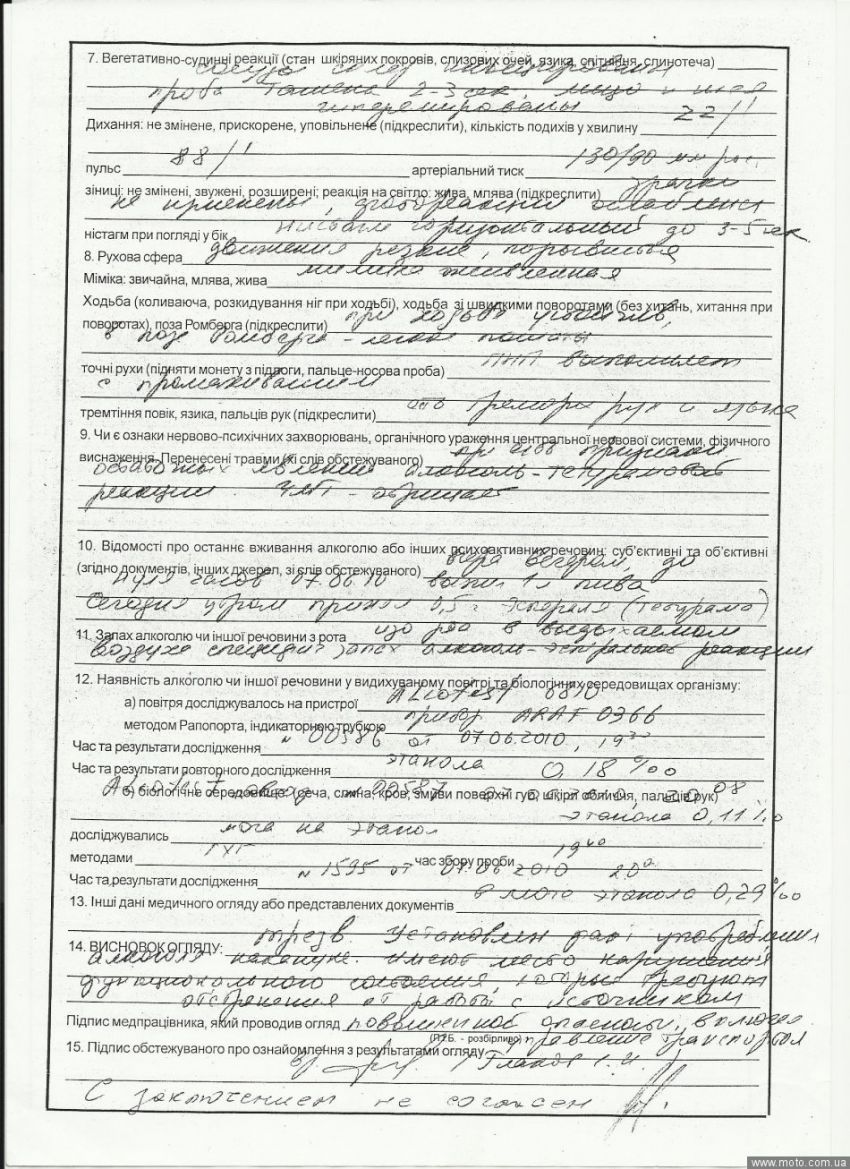 7. Вегетативно-судинні реакції (стан шкіряних покровів, слизових очей, язика, опітніння, слинотеча)
сосуды склер инъецированы
проба Ташена 2-3 сек, лицо и шея
гиперемированы
Дихання: не змінене, прискорене, уповільнене (підкреслити), кількість подихів у хвилину 22/1'
пульс 88/1' артеріальний тиск 130/90 мм рс.
зіниці: не змінені, звужені, розширені; реакція на світло: жива, млява (підкреслити) зрачки
не изменены, фотореакции ослаблены
ністагм при погляді у бік нистагм горизонтальный до 3-5 сек.
8. Рухова сфера движения резкие, порывистые
Міміка: звичайна, млява, жива мимика оживленная
Ходьба (коливаюча, розкидування ніг при ходьбі), ходьба зі швидкими поворотами (без хитань, хитання при
поворотах), поза Ромберга (підкреслити) при ходьбе устойчив,
в позе Ромберга - легкое
точні рухи (підняти монету з підлоги, пальце-носова проба) ПНП выполняет
с промахиванием
тремтіння повік, язика, пальців рук (підкреслити) тремора рук и языка
9. Чи є ознаки нервово-психічних захворювань, органічного ураження центральної нервової системи, фізичного
виснаження. Перенесені травми (зі слів обстежуваного) признаки
явлений алкоголь-тетурамовой
реакции. ЧМТ - отрицает
10. Відомості про останнє вживання алкоголю або інших психоактивних речовин: суб'єктивні та об'єктивні
(згідно документів, інших джерел, зі слів обстежуваного) вчера вечером, до
нуля часов 07.06.10 выпил 1л пива
Сегодня утром принял 0,5 г Эспераля (Тетурама)
11. Запах алкоголю чи іншої речовини з рота изо рта в выдыхаемом
воздухе специфич запах реакции
12. Наявність алкоголю чи іншої речовини у видихуваному повітрі та біологічних середовищах організму:
а) повітря досліджувалось на пристрої Alcotest 6810
методом Рапопорта, індикаторною трубкою прибор ARAF 0366
Час та результати дослідження № 00586 от 07.06.2010, 19
Час та результати повторного дослідження этанола 0,18 ‰
б) біологічне середовище: (сеча, слина, кров, змуви поверхні губ, шкіри обличчя, пальців рук)
Alcotest № 00587 20 08
этанола 0,11 ‰
досліджувались моча на этанол
методами ГЖХ час збору проби 19 40
Час та результати дослідження № 1595 от 07.06.2010 20
в моче этанола 0,29 ‰
13. Інші дані медичного огляду або представлених документів
14. ВИСНОВОК ОГЛЯДУ: трезв. Установлен факт употребления
алкоголя накануне. имеют место нарушения
функционального состояния, которые требуют
отстранения от работы с источником
Підпис медпрацівника, який проводив огляд повышенной опасности, включая
(П.І.Б. - розбірливо) управление транспортом
15. Підпис обстежуваного про ознайомлення з результатами огляду
С заключением не согласен
www.moto.com.ua